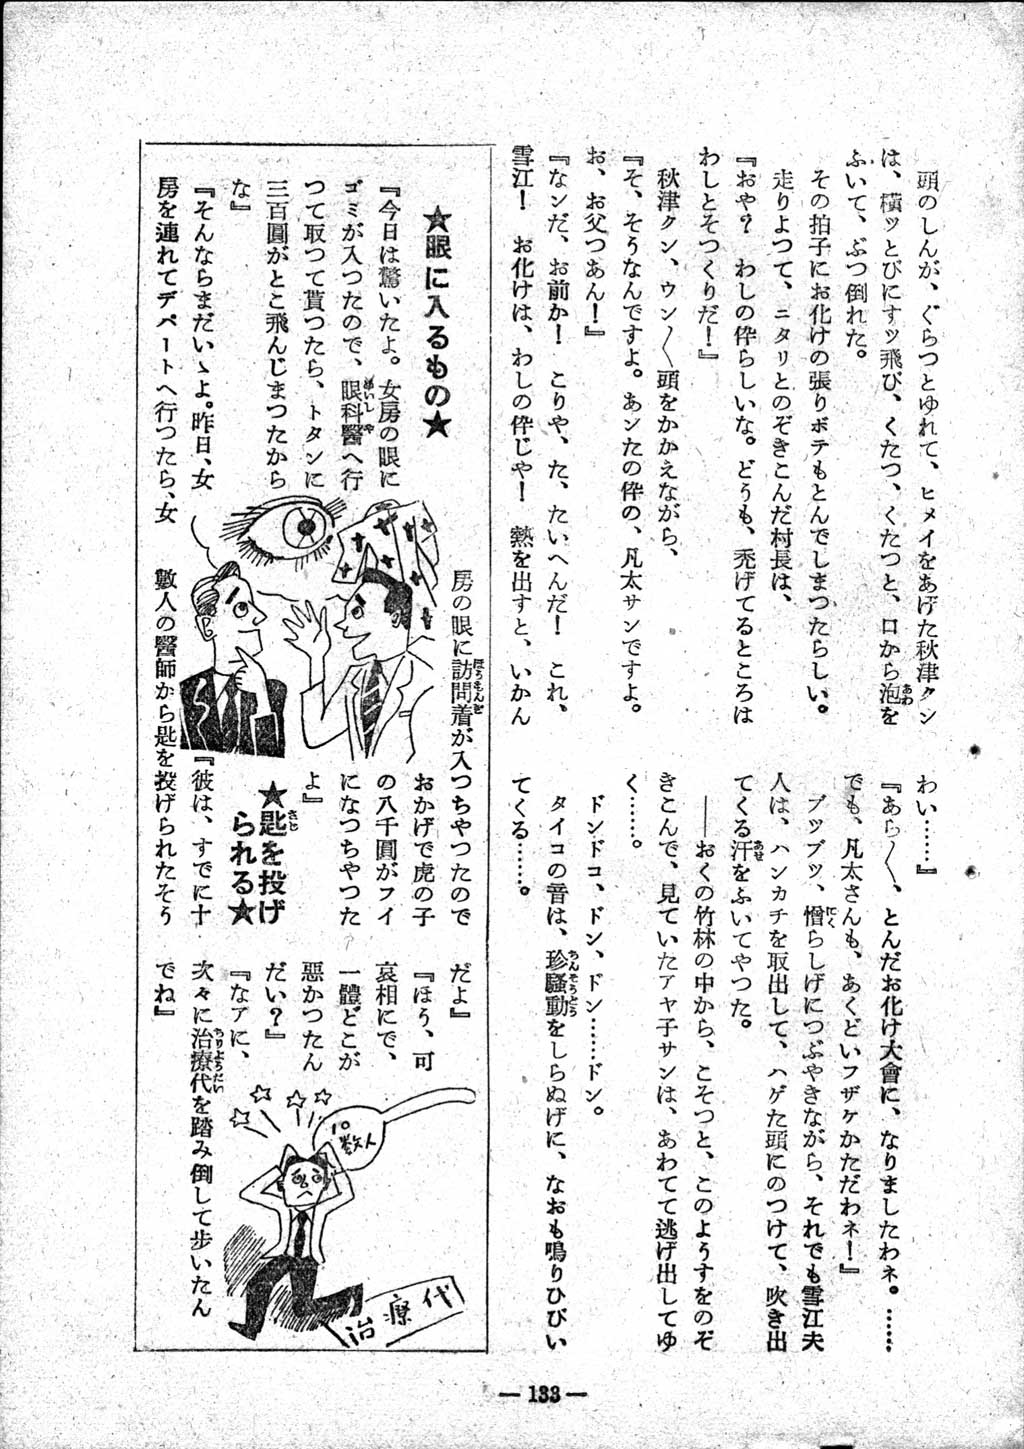 頭のしんが、ぐらつとゆれて、ヒメイをあげた秋津クン
は、横ッとびにすッ飛び、くたつ、くたつと、口から泡を
ふいて、ぶつ倒れた。
その拍子にお化けの張りボテもとんでしまつたらしい。
走りよつて、ニタリとのぞきこんだ村長は、
『おや？　わしの伜らしいな。どうも、禿げてるところは
わしとそつくりだ！』
秋津クン、ウン〳〵頭をかかえながら、
『そ、そうなんですよ。あンたの伜の、凡太サンですよ。
お、お父つあん！』
『なンだ、お前か！　こりや、た、たいへんだ！　これ、
雪江！　お化けは、わしの伜じや！　熱を出すと、いかん
わい……』
『あら〳〵、とんだお化け大會に、なりましたわネ。……
でも、凡太さんも、あくどいフザケかただわネ！』
ブツブツ、憎らしげにつぶやきながら、それでも雪江夫
人は、ハンカチを取出して、ハゲた頭にのつけて、吹き出
てくる汗をふいてやつた。
――おくの竹林の中から、こそつと、このようすをのぞ
きこんで、見ていたアヤ子サンは、あわてて逃げ出してゆ
く……。
ドンドコ、ドン、ドン……ドン。
タイコの音は、珍騒動をしらぬげに、なおも鳴りひびい
てくる……。
★眼に入るもの★
『今日は驚いたよ。女房の眼に
ゴミが入つたので、眼科醫へ行
つて取つて貰つたら、トタンに
三百圓がとこ飛んじまつたから
な』
『そんならまだいゝよ。昨日、女
房を連れてデパートへ行つたら、女
房の眼に訪問着が入つちやつたので
おかげで虎の子
の八千圓がフイ
になつちやつた
よ』
★匙を投げ
られる★
『彼は、すでに十
數人の醫師から匙を投げられたそう
だよ』
『ほう、可
哀相にで、
一體どこが
惡かつたん
だい？』
『なアに、
次々に治療代を踏み倒して歩いたん
でね』
10
数人
治療代
― 133 ―